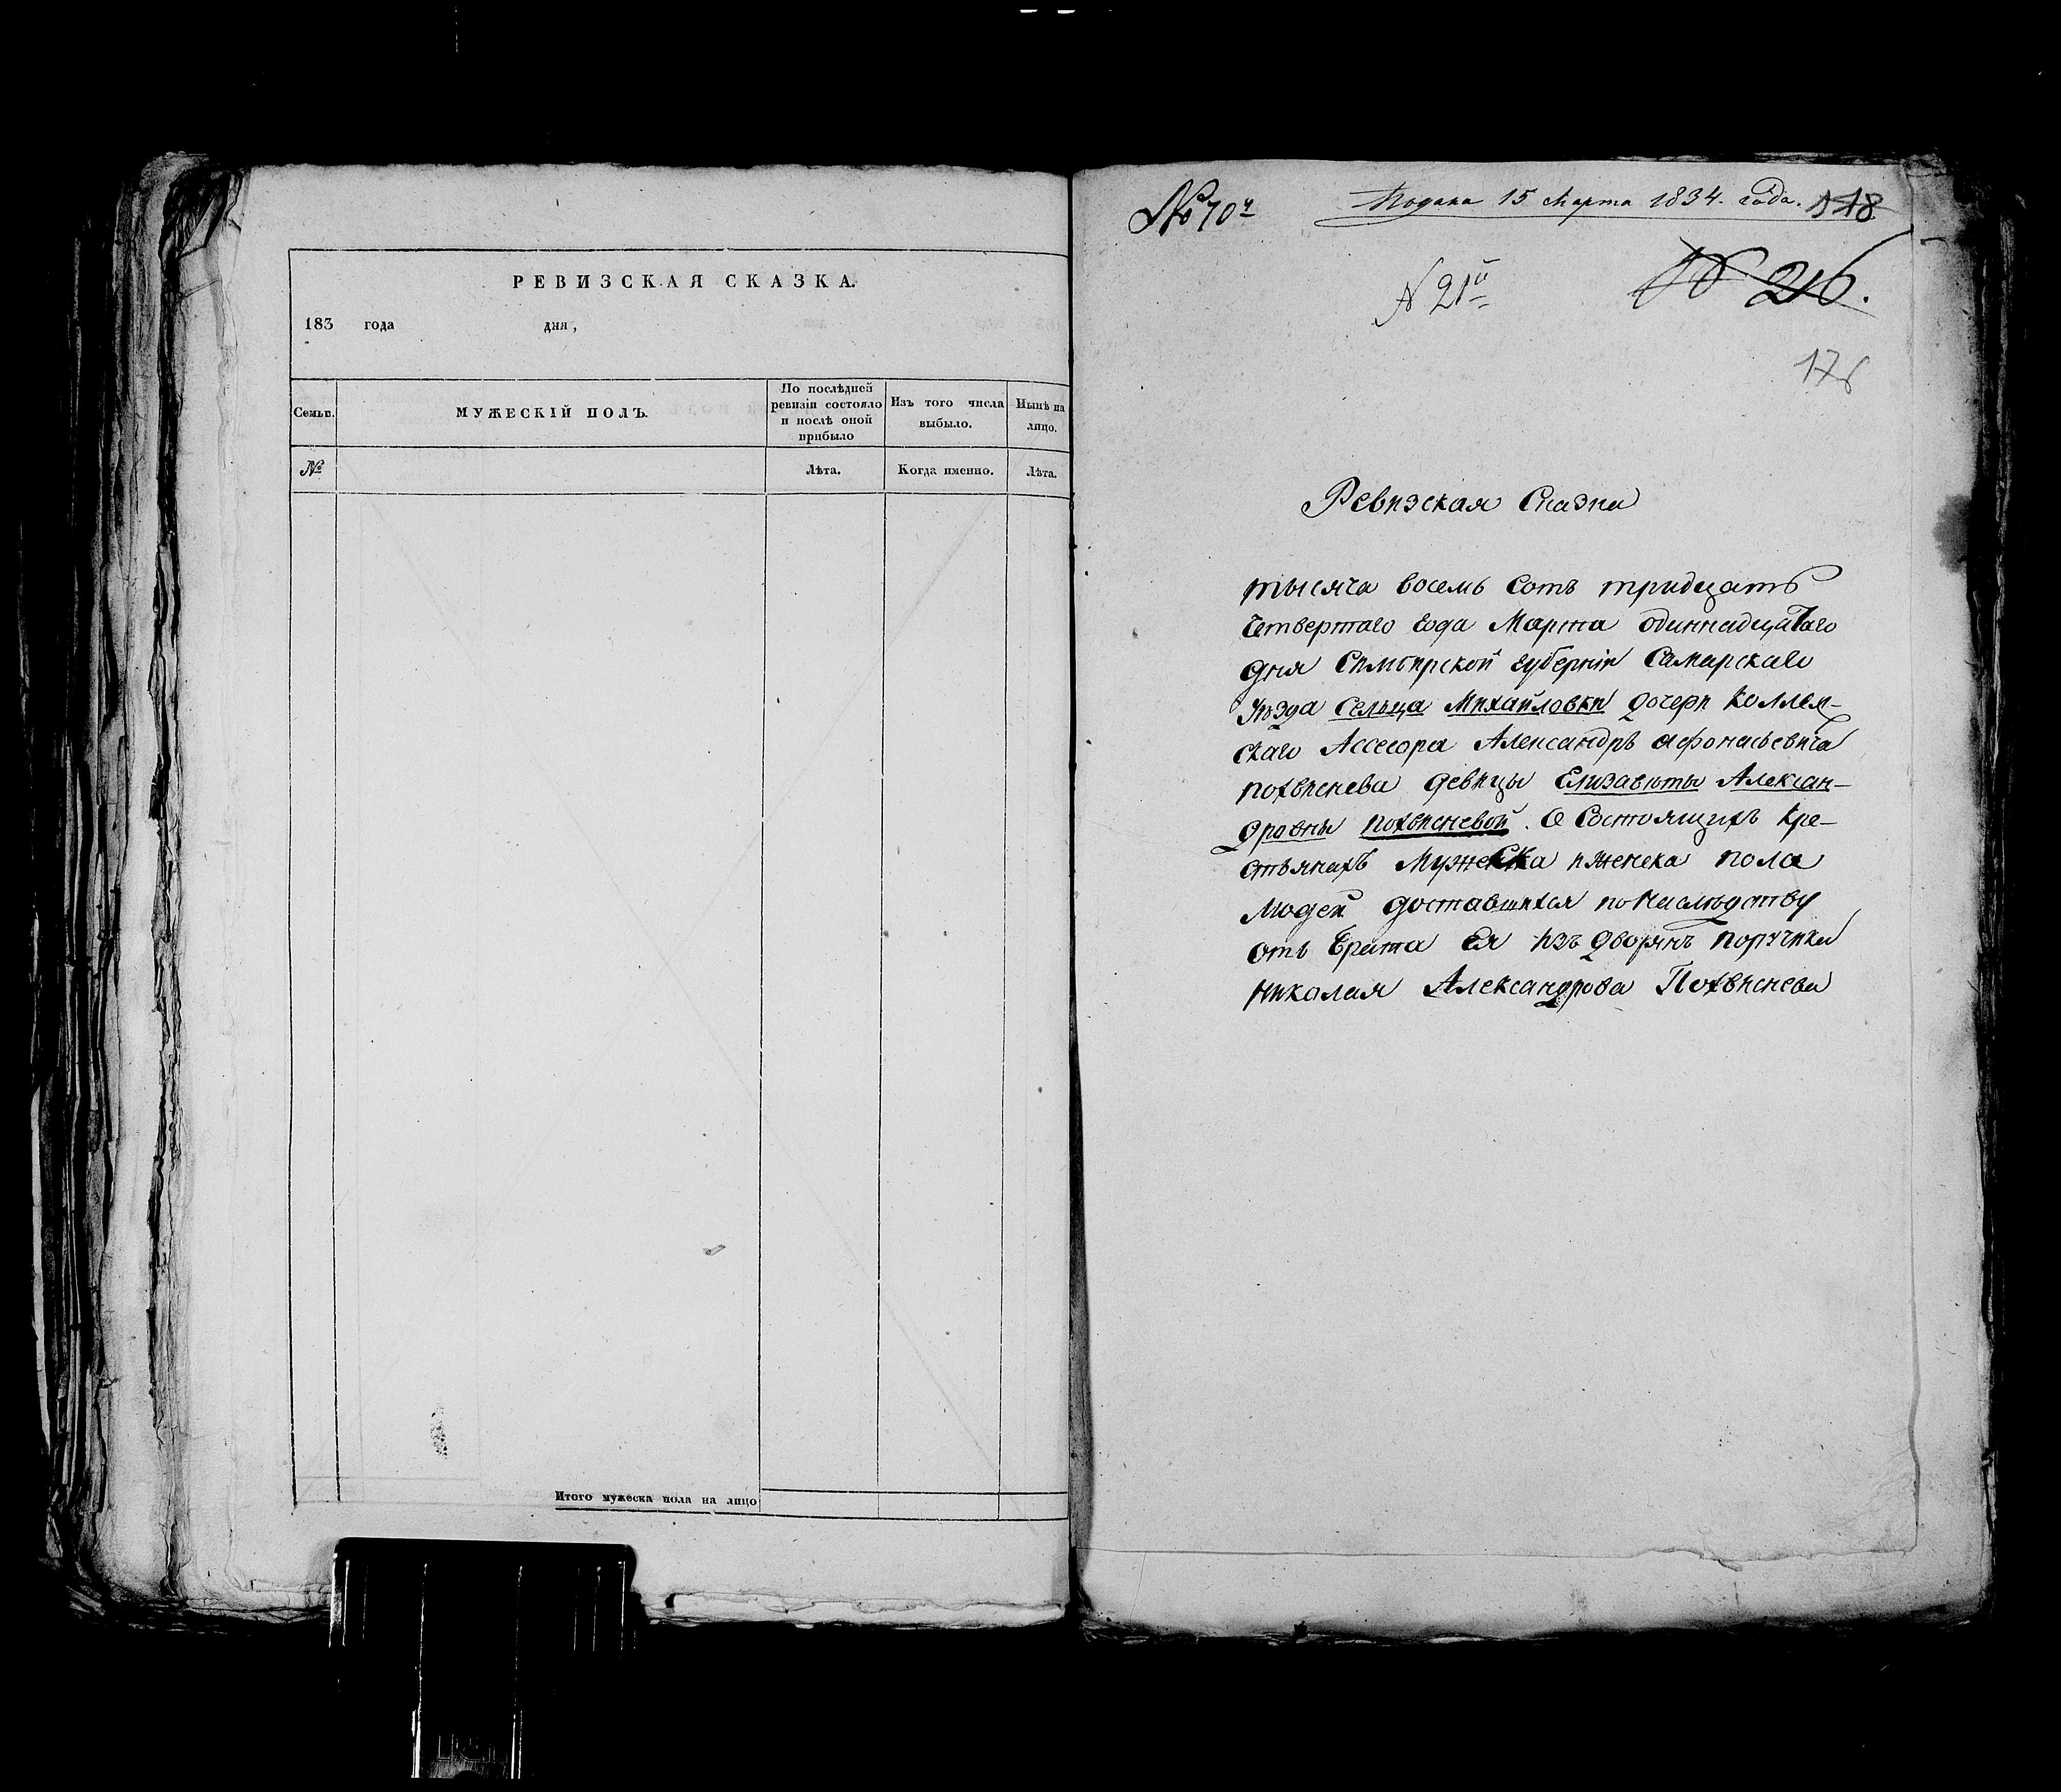 РЕВИЗСКАЯ СКАЗКА.
183 года дня,
Семьи.
МУЖЕСКІЙ ПОЛЪ.
По послѣдней
ревизіи состояло
и послѣ оной
прибыло
Изъ того числа
выбыло.
Нынѣ на
лицо.
№
Лѣта.
Когда именно.
Лѣта.
Итого мужеска пола на лицо
№ 70й
Подана 15 марта 1834. года.
118
N 21й
№ 216.
Ревизская Сказка
тысяча восемь сотъ тридцать
Четвертаго года Марта одиннадцатаго
дня Симбирской губерніи Самарскаго
Уѣзда Сельца Михайловки дочери Коллеж-
скаго Ассесора Александръ Афонасьевича
похвиснева девицы Елизавѣты Алексан-
дровны похвисневой. О Состоящихъ кре-
стьянахъ Мужеска и женска пола
людей доставшихся по наслѣдству
отъ брата Ея изъ дворянъ поручика
Николая Александрова Похвиснева